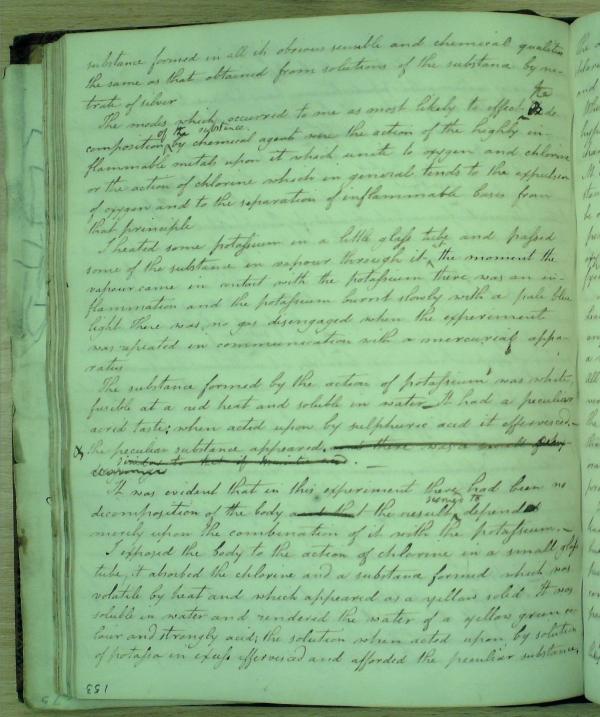 substance formed in all its obvious sensible and chemical qualities
the same as that obtained from solutions of the substance by ni-
trate of silver
The modes which occurred to me as most likely to effect the de-
composition of the substance by chemical agent were the action of the highly in-
flammable metals upon it which unite to oxygen and chlorine
or the action of chlorine which in general tends to the expulsion
of oxygen and to the separation of inflammable bases from
that principle
I heated some potaſsium in a little glaſs tube and paſsed
some of the substance in vapour through it, the moment the
vapour came in contact with the potaſsium there was an in-
flammation and the potaſsium burnt slowly with a pale blue
light There was no gas disengaged when the experiment
was repeated in communication with a mercurial appa-
ratus
The substance formed by the action of potaſsium was white,
fusible at a red heat and soluble in water_ It had a peculiar
acrid taste; when acted upon by sulphuric acid it effervesced_
& the peculiar substance appeared. and there was a
similar to that of
It was evident that in this experiment there had been no
decomposition of the body and that the result seemed to depend
merely upon the combination of it with the potaſsium._
I exposed the body to the action of chlorine in a small glaſs
tube, it absorbed the chlorine and a substance formed which was
volatile by heat and which appeared as a yellow solid It was
soluble in water and rendered the water of a yellow green co-
lour and strongly acid; the solution when acted upon by solution
of potaſsa in exceſs effervesced and afforded the peculiar substance,
153